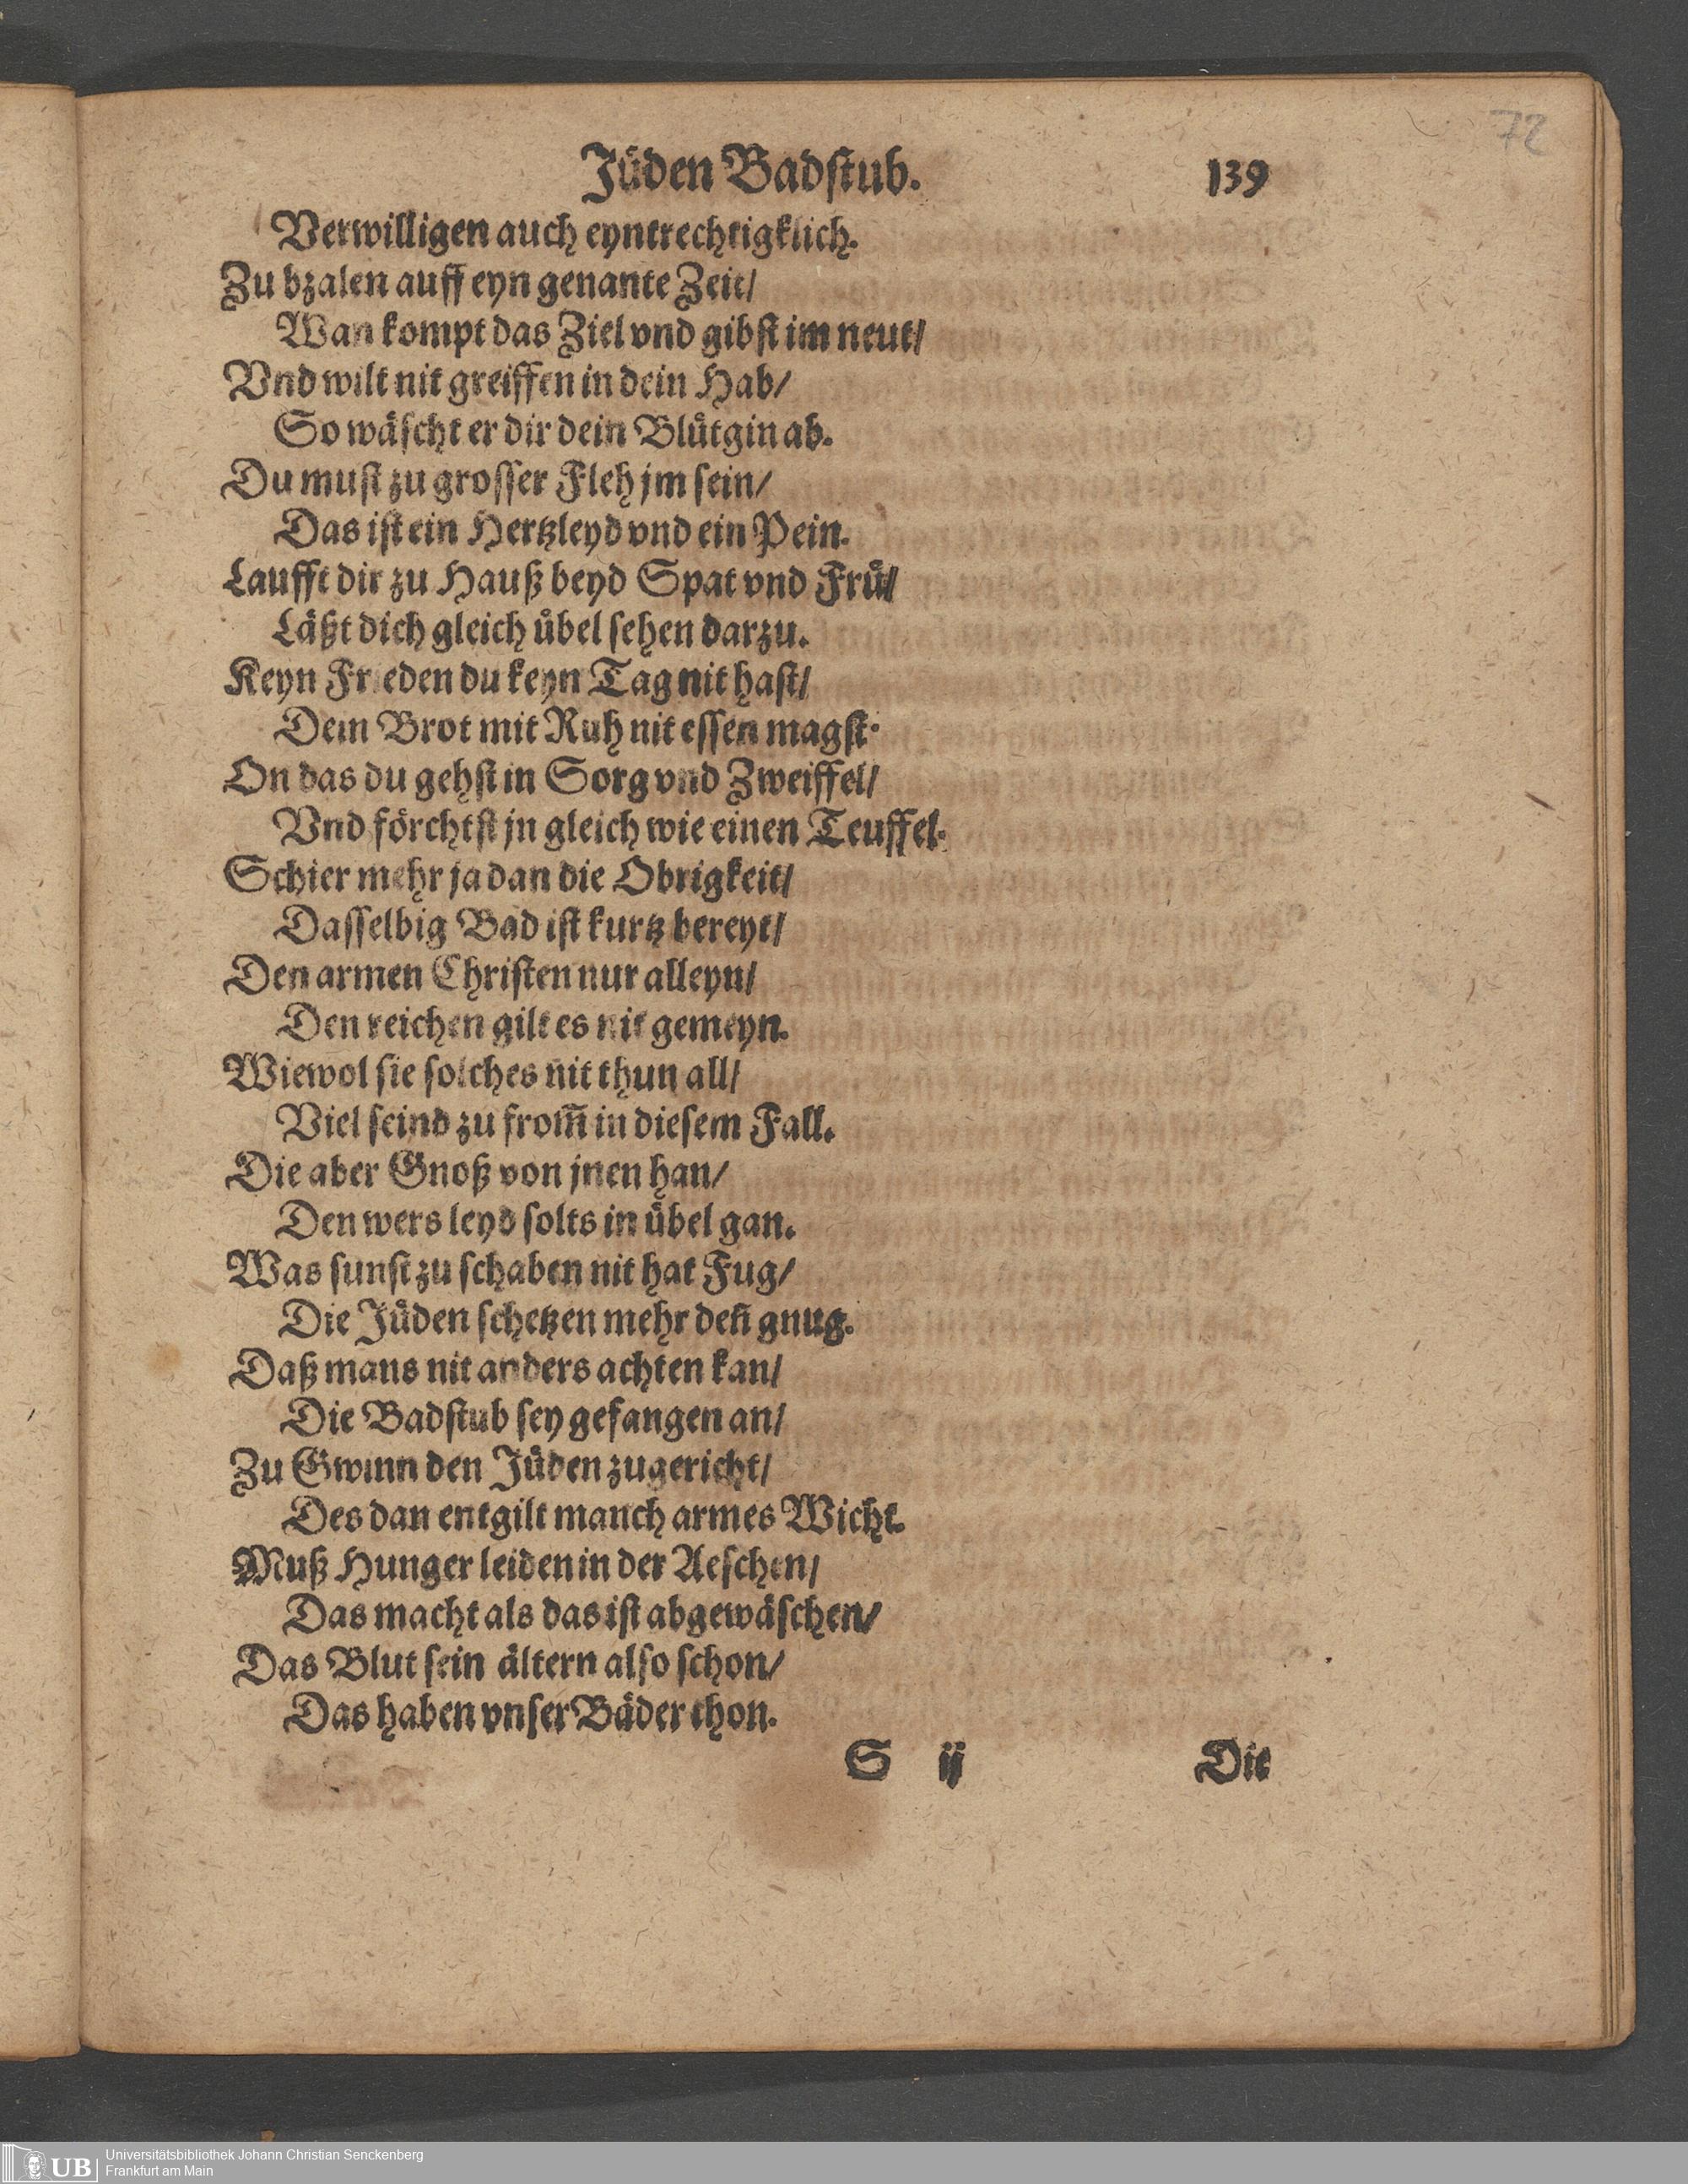 72
Jüden Badstub. 139
Verwilligen auch eyntrechtigklich.
Zu bzalen auff eyn genante Zeit/
Wan kompt das Ziel vnd gibst im neut/
Vnd wilt nit greiffen in dein Hab/
So wäscht er dir dein Blütgin ab.
Du must zu grosser Fleh jm sein/
Das ist ein Hertzleyd vnd ein Pein.
Laufft dir zu Hauß beyd Spat vnd Frü/
Läßt dich gleich übel sehen darzu.
Keyn Frieden du keyn Tag nit hast/
Dein Brot mit Ruh nit essen magst.
On das du gehst in Sorg vnd Zweiffel/
Vnd förchtst jn gleich wie einen Teuffel.
Schier mehr ja dan die Obrigkeit/
Dasselbig Bad ist kurtz bereyt/
Den armen Christen nur alleyn/
Den reichen gilt es nit gemeyn.
Wiewol sie solches nit thun all/
Viel seind zu from̃ in diesem Fall.
Die aber Gnoß von jnen han/
Den wers leyd solts in übel gan.
Was sunst zu schaben nit hat Fug/
Die Jüden schetzen mehr deñ gnug.
Daß mans nit anders achten kan/
Die Badstub sey gefangen an/
Zu Gwinn den Jüden zugericht/
Des dan entgilt manch armes Wicht.
Muß Hunger leiden in der Aeschen/
Das macht als das ist abgewäschen/
Das Blut sein ältern also schon/
Das haben vnser Bäder thon.
S ij Die
UB Universitätsbibliothek Johann Christian Senckenberg
Frankfurt am Main